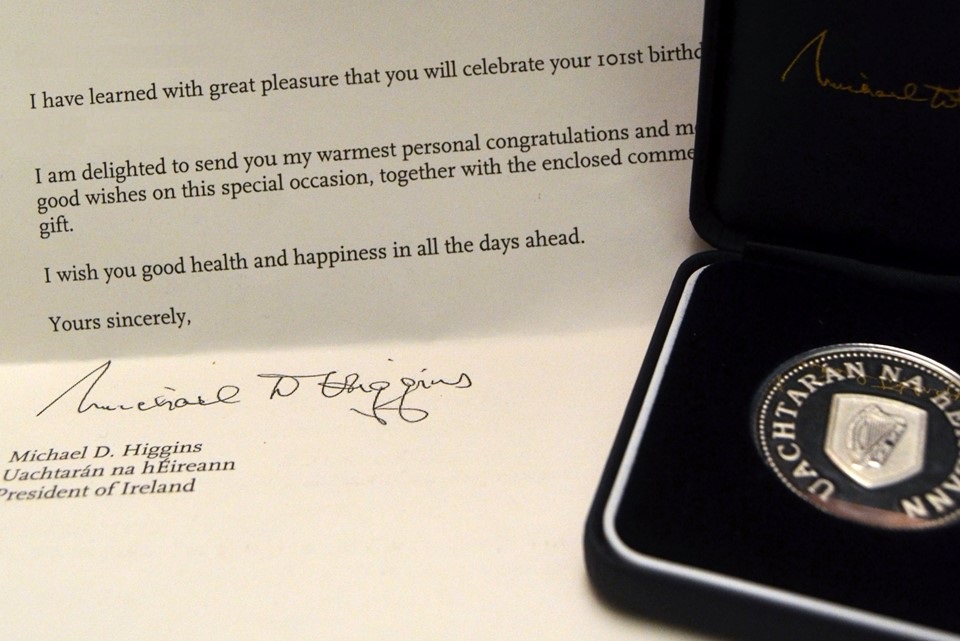 I have learned with great pleasure that you will celebrate your 101st
I am delighted to send you my warmest personal congratulations and
good wishes on this special occasion, together with the enclosed
gift.
I wish you good health and happiness in all the days ahead.
Yours sincerely,
Michael D Higgins
Michael D. Higgins
Uachtarán na hÉireann
President of Ireland
Michael D
UACHTARÁN NA hÉIREANN